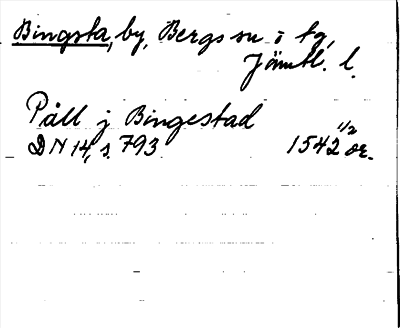 Bingsta, by, Bergs sn o tg,
Jämtl. l.
Påll j Bingestad
DN 14, s. 793 1542 1/2 or.